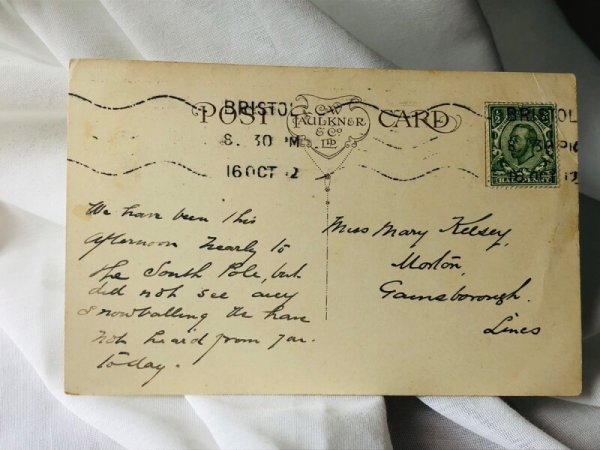 POST CARD
C.W.
FAULKNER
& Co
LTD.
BRISTOL
8. 30 PM
16 OCT 12
BRISTOL
We have been this
afternoon nearly to
the South Pole, but
did not see any
snowballing We have
not heard from
today.
Miss Mary Kelsey,
Morton,
Gainsborough.
Lincs